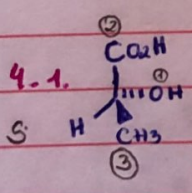 ②
CO2H
4.1.
①
OH
S:
H
CH3
③